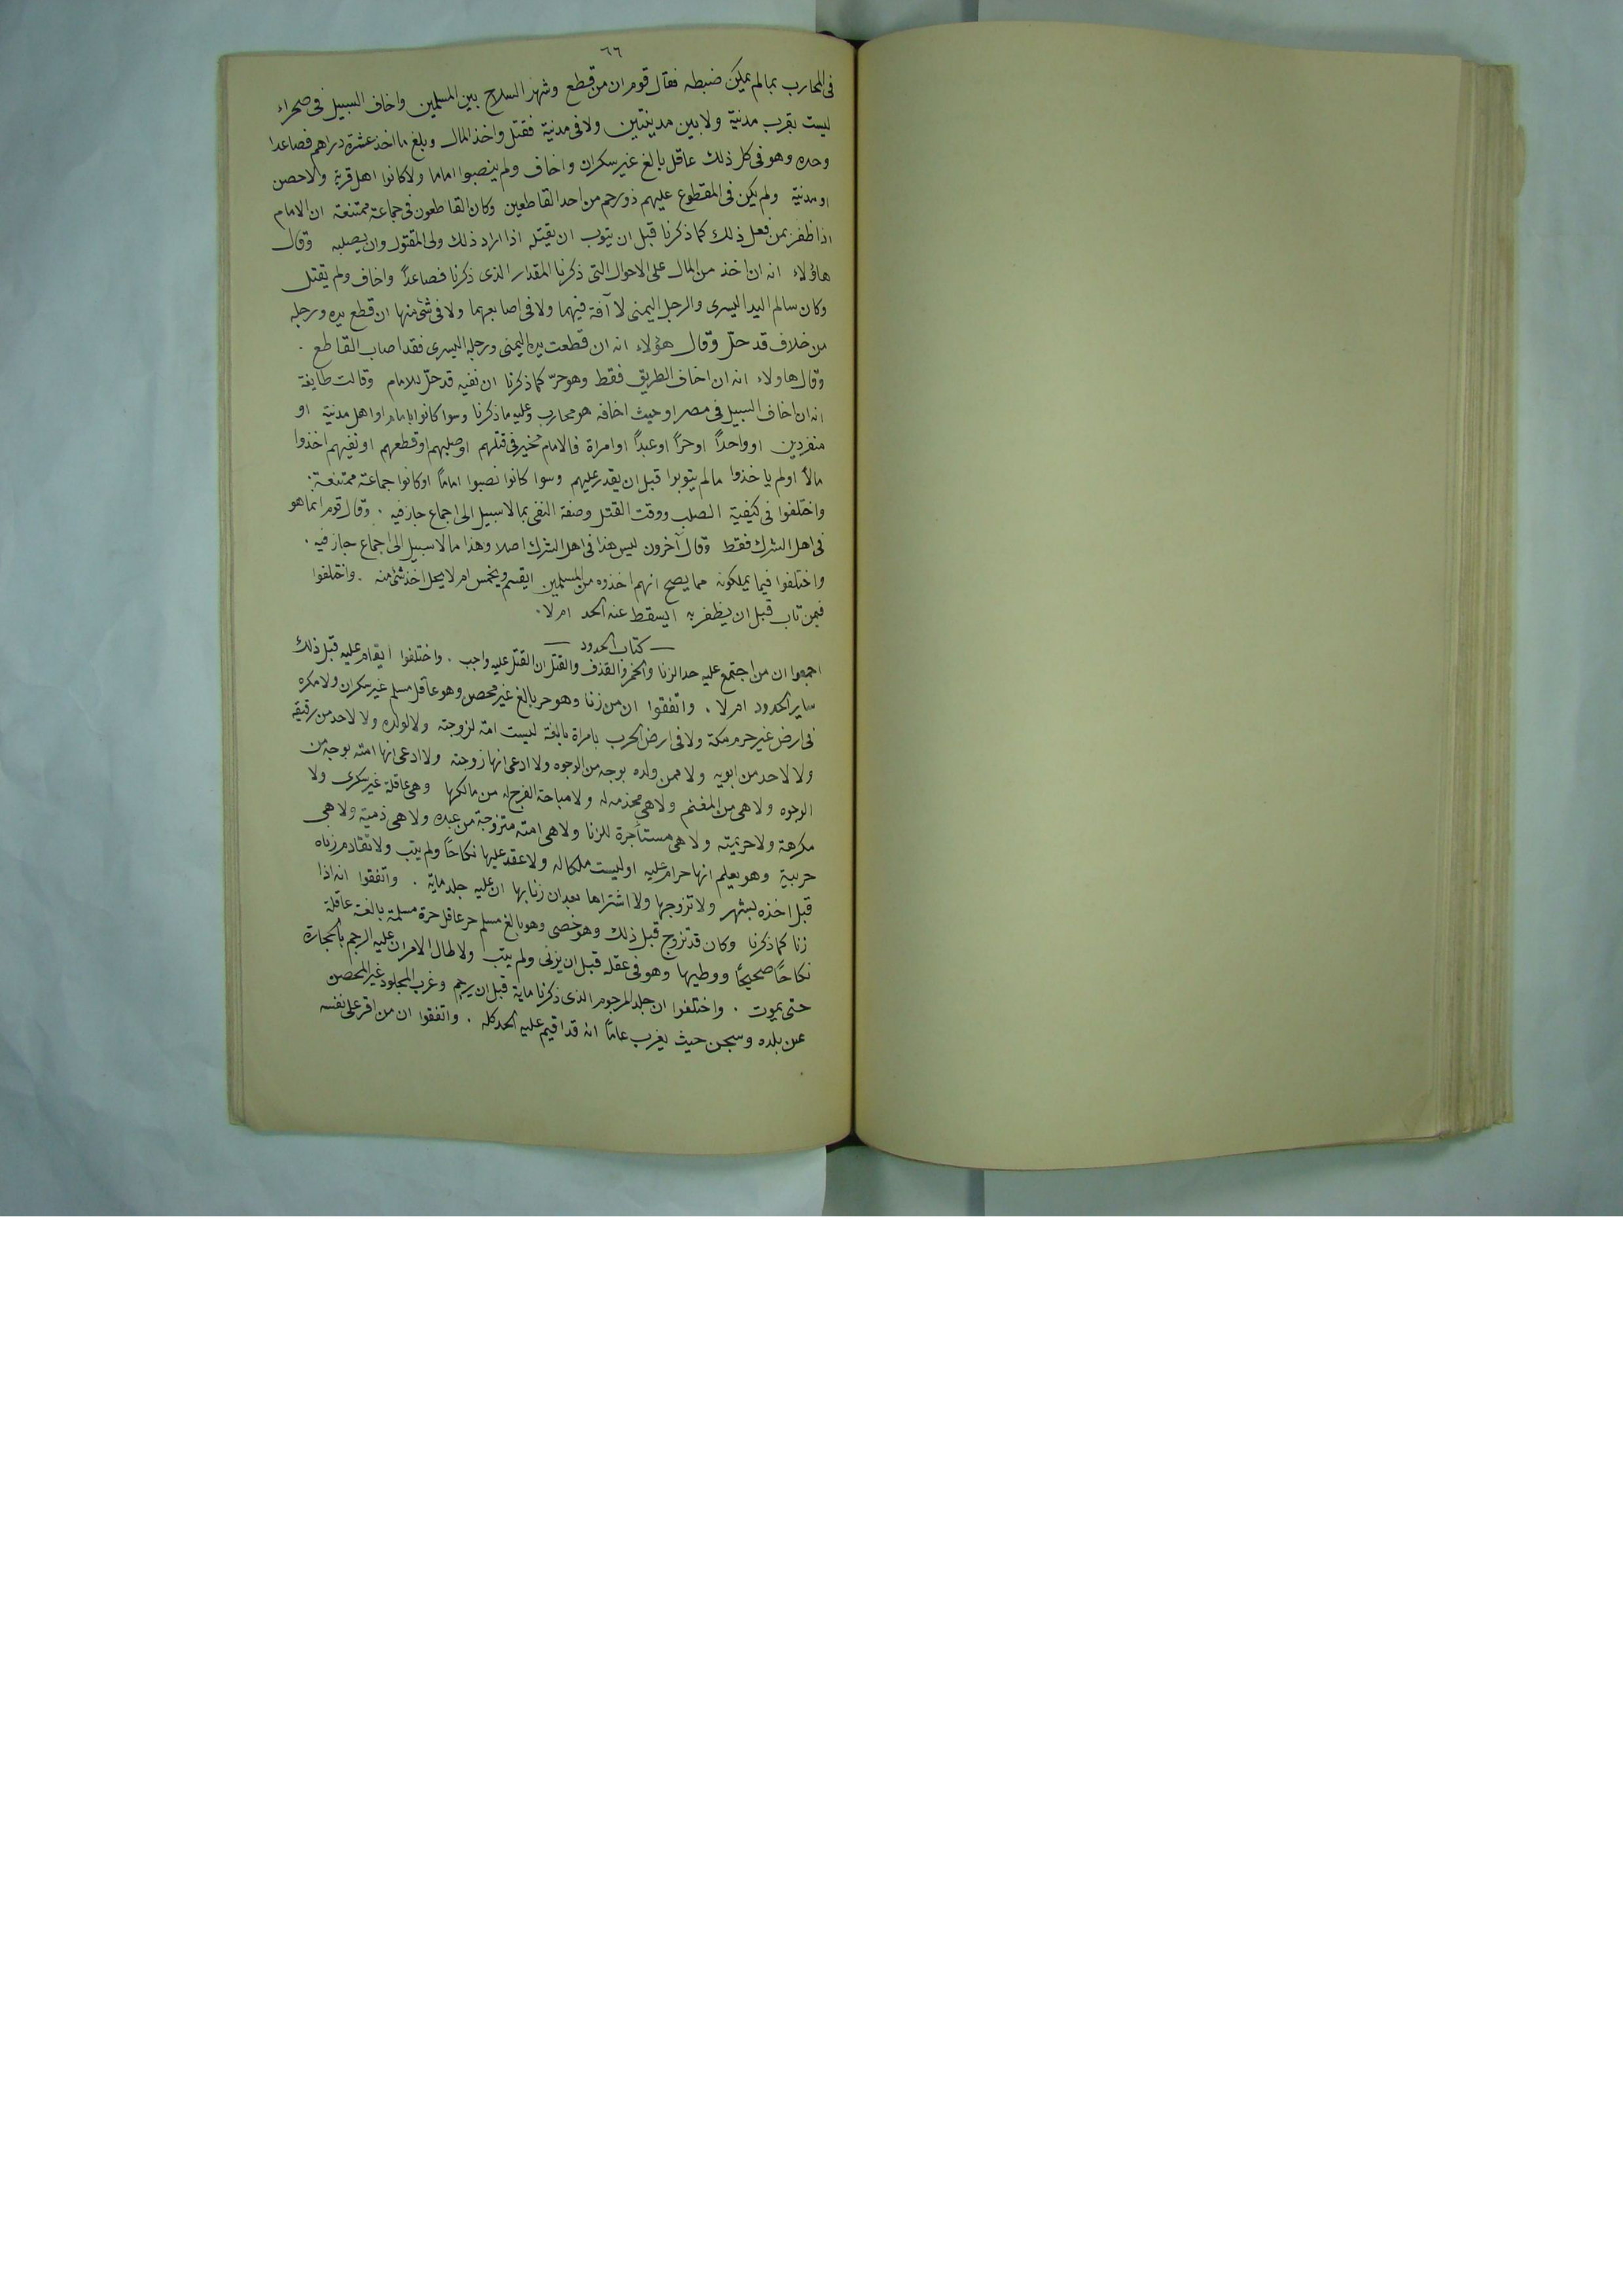 ٦٦
فى المحارب بمالم يمكن ضبطه فقال قوم ان من قطع وشهر السلاح بين المسلمين واخاف السبيل فى صحراء
ليست بقرب مدنية ولا بين مدينتين ولا فى مدنية فقتل واخذ المال وبلغ ما اخذ عشرة دراهم فصاعدا
وحده وهو فى كل ذلك عاقل بالغ غير سكران واخاف ولم ينصبوا اماما ولا كانوا اهل قرية ولا حصن
او مدنية ولم يكن فى المقطوع عليهم ذو رحم من احد القاطعين وكان القاطعون فى جماعة ممتنعة ان الامام
اذا ظفر بمن فعل ذلك كما ذكرنا قبل ان يتوب ان يقتله اذا اراد ذلك ولى المقتول وان يصلبه وقال
هاؤلاء انه ان اخذ من المال على الاحوال التى ذكرنا المقدار الذى ذكرنا فصاعدًا واخاف ولم يقتل
وكان سالم اليد اليسرى والرجل اليمنى لا آفة فيهما ولا فى اصابعهما ولا فى شئ منها ان قطع يده ورجله
من خلاف قد حلّ وقال هؤلاء انه ان قطعت يده اليمنى ورجله اليسرى فقد اصاب القاطع .
وقال هاولاء انه ان اخاف الطريق فقط وهو حرّ كما ذكرنا ان نفيه قد حلّ للامام وقالت طايفة
انه ان اخاف السبيل فى مصر او حيث اخافه هو محارب وعليه ما ذكرنا وسوا كانوا بامام او اهل مدنية او
منفردين او واحدًا او حرًا او عبدًا او امراة فالامام مخير فى قتلهم او صلبهم او قطعهم او نفيهم اخذوا
مالاً اولم ياخذوا مالم يتوبوا قبل ان يقدر عليهم وسوا كانوا نصبوا امامًا او كانوا جماعة ممتنعة .
واختلفوا فى كيفية الصلب ووقت القتل وصفة النفى بمالاسبيل الى اجماع جاز فيه . وقال قوم انما هو
فى اهل الشرك فقط وقال آخرون ليس هذا فى اهل الشرك اصلا وهذا مالاسبيل الى اجماع جاز فيه .
واختلفوا فيما يملكونه مما يصح انهم اخذوه من المسلمين ايقسم ويخمس ام لا يحل اخذ شئ منه . واختلفوا
فيمن تاب قبل ان يظفر به ايسقط عنه الحد ام لا .
— كتاب الحدود —
اجمعوا ان من اجتمع عليه حد الزنا والخمر والقذف والقتل ان القتل عليه واجب . واختلفوا ايقام عليه قبل ذلك
ساير الحدود ام لا . واتفقوا ان من زنا وهو حر بالغ غير محصن وهو عاقل مسلم غير سكران ولا مكره
فى ارض غير حرم مكة ولا فى ارض الحرب بامراة بالغة ليست امة لزوجته ولا لولده ولا لاحد من رقيقه
ولا لاحد من ابويه ولا ممن ولده بوجه من الوجوه ولا ادعى انها زوجته ولا ادعى انها امته بوجه من
الوجوه ولا هى من المغنم ولا هى مخذمه له ولا مباحة الفرج له من مالكها وهى عاقلة غير سكرى ولا
مكرهة ولا حريمته ولا هى مستأجرة للزنا ولا هى امته متزوجة من عبده ولا هى ذمية ولا هى
حربية وهو يعلم انها حرام عليه او ليست ملكا له ولا عقد عليها نكاحًا ولم يتب ولا تقادم زناه
قبل اخذه بشهر ولا تزوجها ولا اشتراها بعد ان زنا بها ان عليه جلد ماية . واتفقوا انه اذا
زنا كما ذكرنا وكان قد تزوج قبل ذلك وهو خصى وهو بالغ مسلم حر عاقل حرة مسلمة بالغة عاقلة
نكاحًا صحيحًا ووطيها وهو فى عقله قبل ان يزنى ولم يتب ولا طال الامر ان عليه الرجم بالحجارة
حتى يموت . واختلفوا ان جلد المرجوم الذى ذكرنا ماية قبل ان يرجم وغرب المجلود غير المحصن
عن بلده وسجن حيث يغرب عامًا انه قد اقيم عليه الحد كله . واتفقوا ان من اقر على نفسه